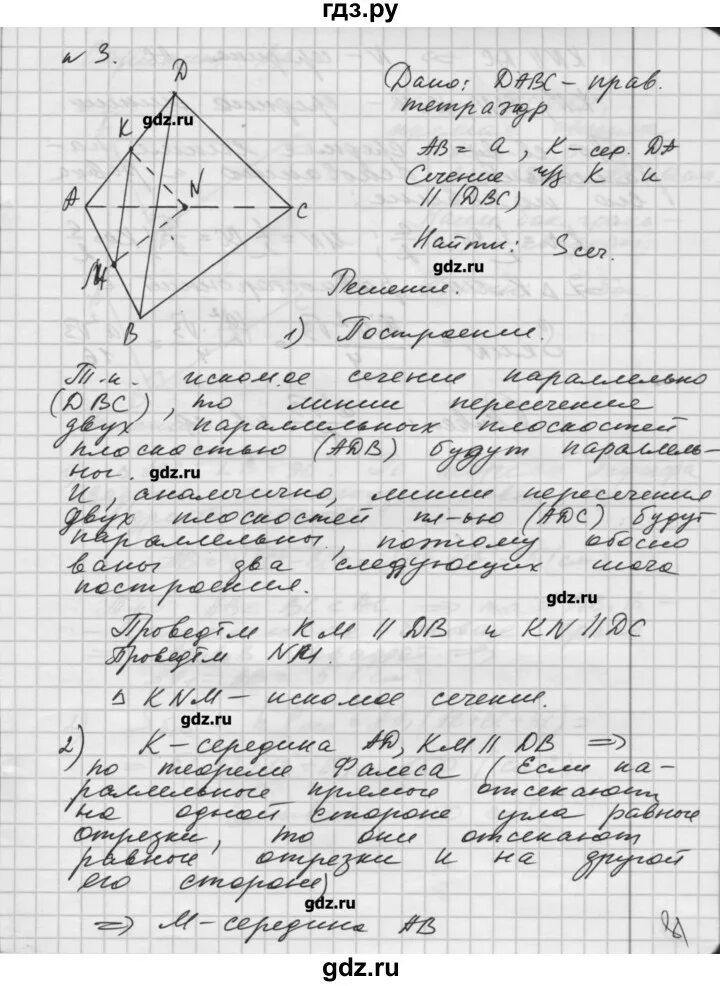 гдз.ру
№ 3.
D
K
A
N
C
M
B
gdz.ru
Дано: DABC – прав.
тетраэдр
AB = a, K – сер. DA
Сечение ч/з K и
|| (DBC)
Найти: Sсеч.
gdz.ru
Решение.
1) Построение.
Т.к. искомое сечение параллельно
(DBC), то линии пересечения
двух параллельных плоскостей
плоскостью (ADB) будут параллель-
ны.
gdz.ru
И, аналогично, линии пересечения
двух плоскостей пл-ью (ADC) будут
параллельны, поэтому обосно
ваны два следующих шага
построения.
gdz.ru
Проведём KM || DB и KN || DC
Проведём NM.
▷ KNM – искомое сечение.
gdz.ru
2) K – середина AD, KM || DB ⇒
по теореме Фалеса (Если па-
раллельные прямые отсекают
на одной стороне угла равные
отрезки, то они отсекают
равные отрезки и на другой
его стороне)
gdz.ru
⇒ M – середина AB
gdz.ru